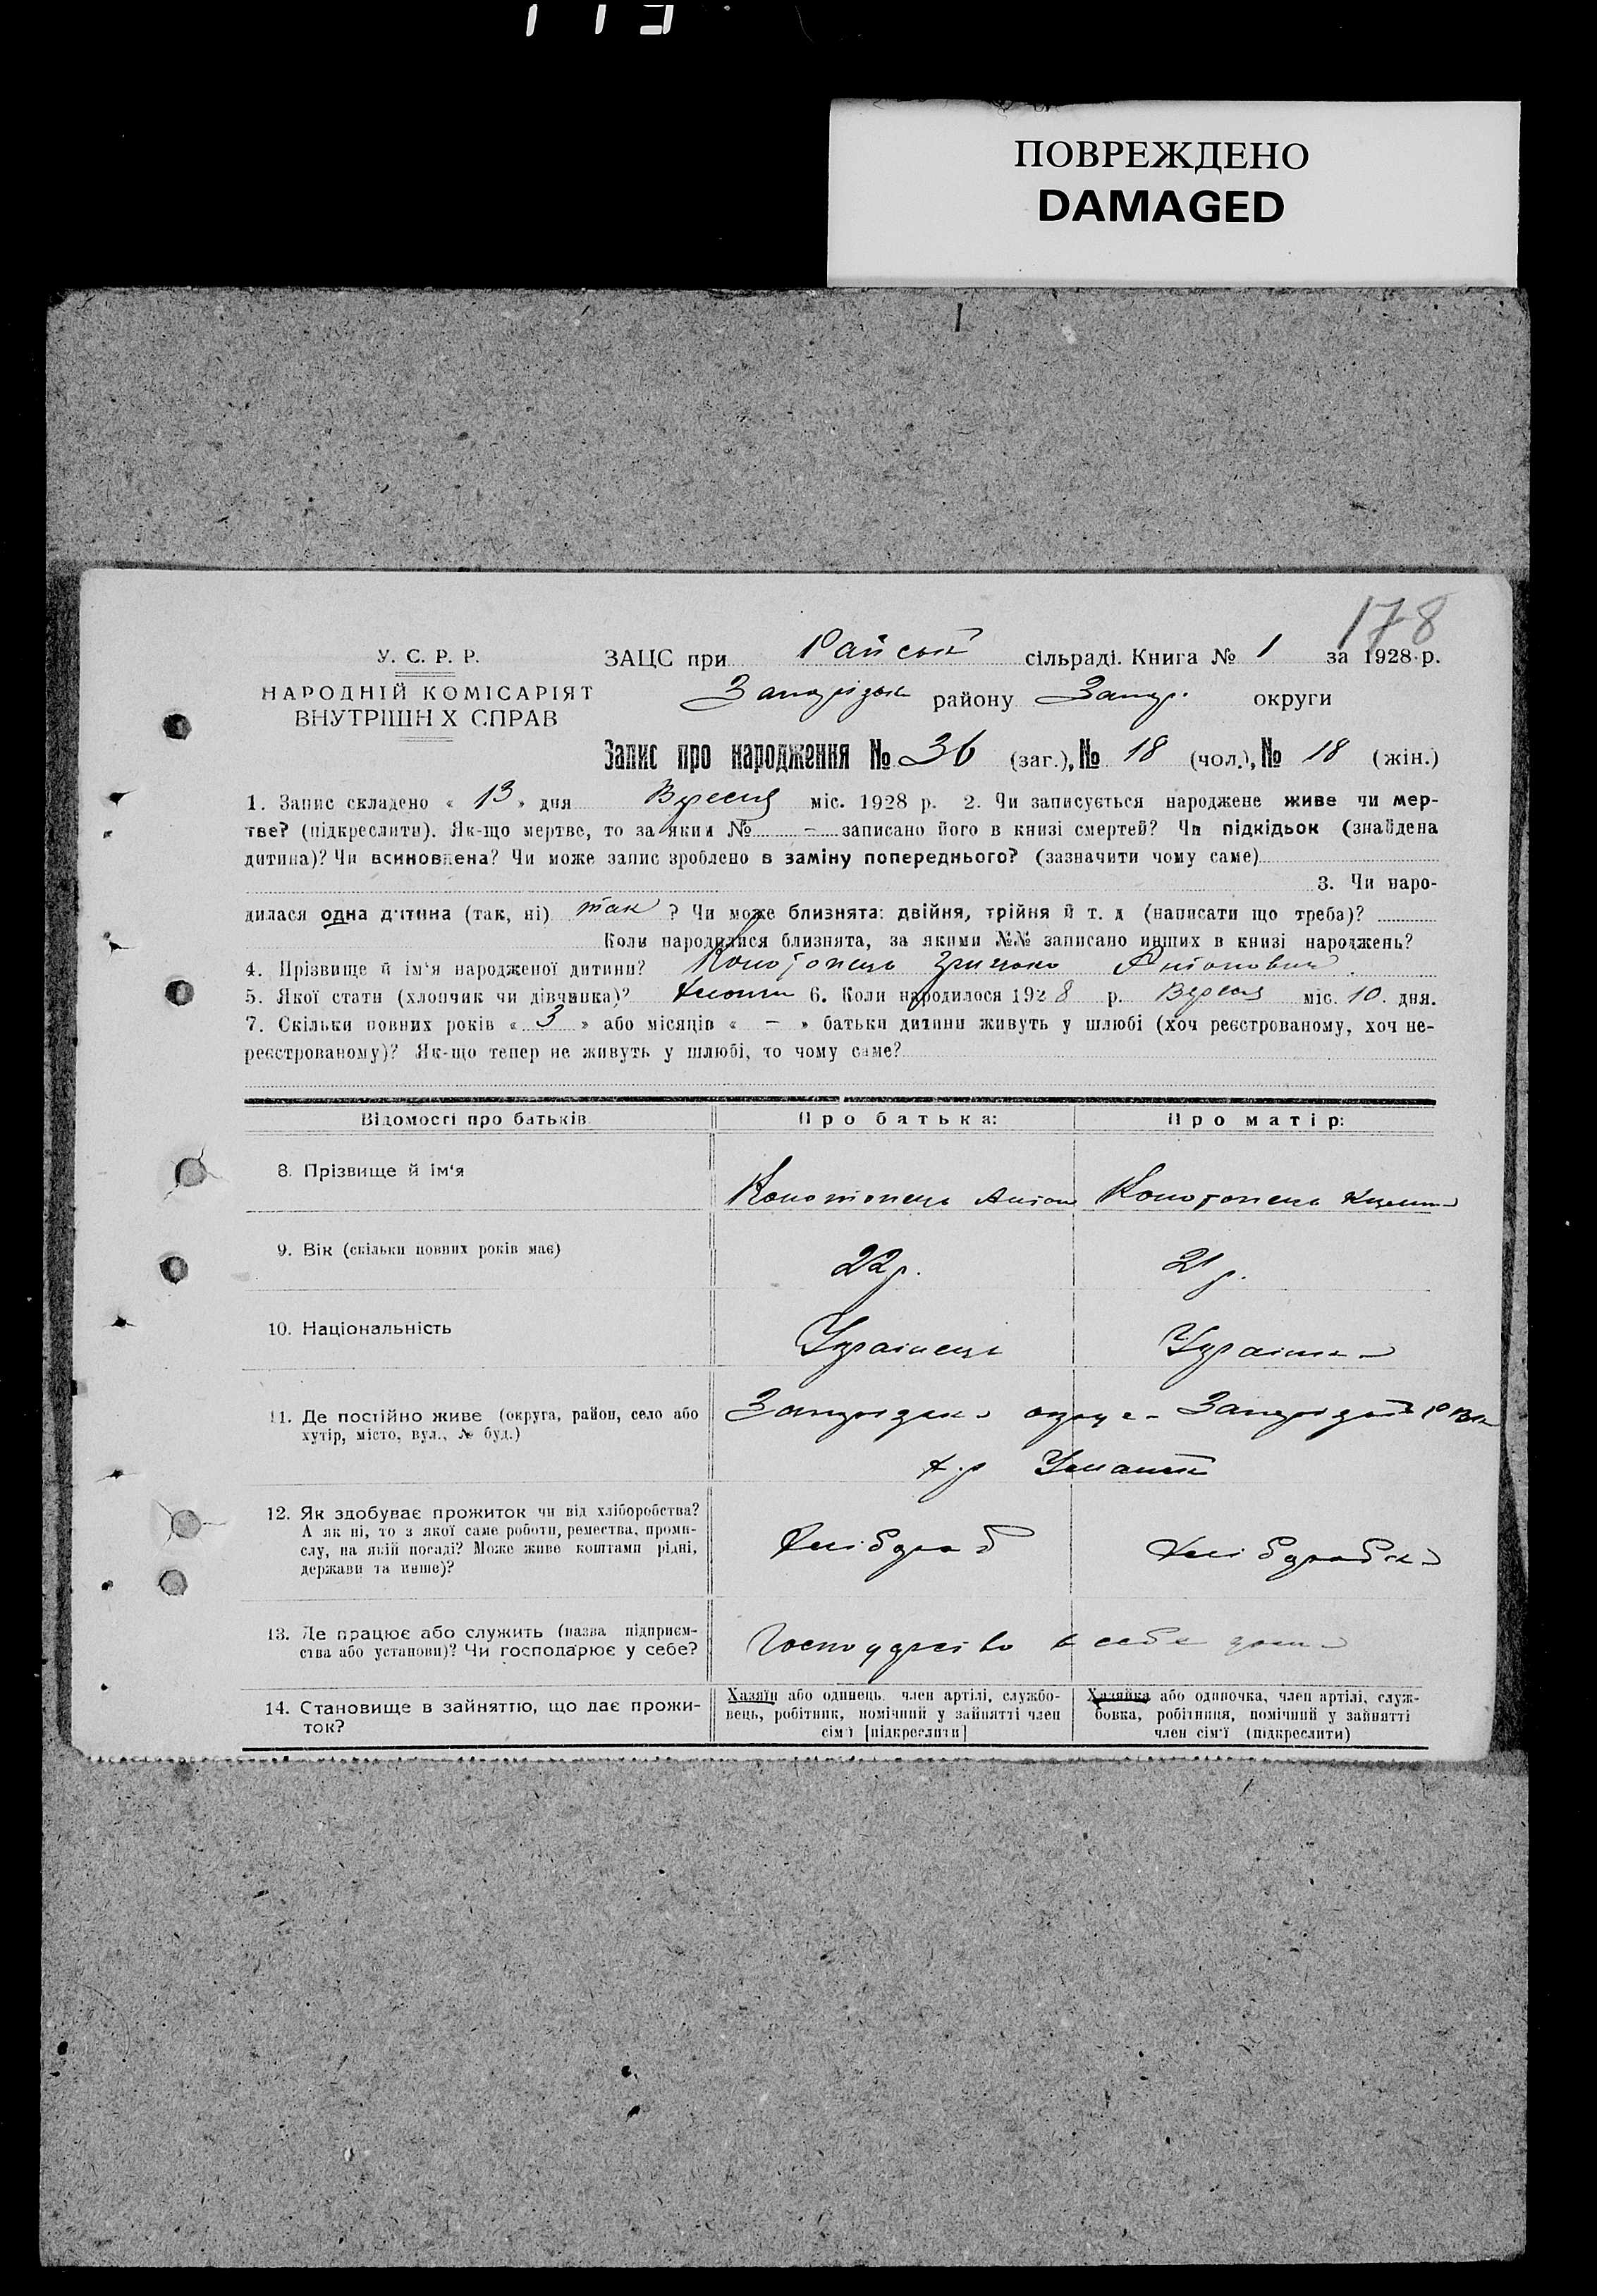 ПОВРЕЖДЕНО
DAMAGED
178
У. С. Р. Р.
НАРОДНІЙ КОМІСАРІЯТ
ВНУТРІШН Х СПРАВ
ЗАЦС при Райській сільраді. Книга № 1 за 1928 р.
Запорізьк району Запор. округи
Запис про народження № 36 (заг.), № 18 (чол.), № 18 (жін.)
1. Запис складено « 13 » дня Вересня міс. 1928 р. 2. Чи записується народжене живе чи мер-
тве? (підкреслити). Як-що мертве, то за яким № - записано його в книзі смертей? Чи підкідьок (знайдена
дитина)? Чи всиновлена? Чи може запис зроблено в заміну попереднього? (зазначити чому саме)
3. Чи наро-
дилася одна дитина (так, ні) так ? Чи може близнята: двійня, трійня й т. д (написати що треба)?
Коли народилися близнята, за якими №№ записано инших в книзі народжень?
4. Прізвище й ім'я народженої дитини? Конотопець Грицько Антонович
5. Якої стати (хлопчик чи дівчинка)? Хлопч 6. Коли народилося 1928 р. Вересня міс. 10 дня.
7. Скільки повних років « 3 » або місяців « - » батьки дитини живуть у шлюбі (хоч реєстрованому, хоч не-
реєстрованому)? Як-що тепер не живуть у шлюбі, то чому саме?
Відомості про батьків
Про батька:
Про матір:
8. Прізвище й ім'я
Конотопець Антон
Конотопець
9. Вік (скільки повних років має)
22 р.
21 р.
10. Національність
Українець
Українка
11. Де постійно живе (округа, район, село або
хутір, місто, вул., № буд.)
Запорізька округа Запорізький
х-р
12. Як здобуває прожиток чи від хліборобства?
А як ні, то з якої саме роботи, ремества, проми-
слу, на якій посаді? Може живе коштами рідні,
держави та инше)?
Хлібороб
Хліборобка
13. Де працює або служить (назва підприєм-
ства або установи)? Чи господарює у себе?
Господарство в себе дома
14. Становище в зайняттю, що дає прожи-
ток?
Хазяїн або одинець, член артілі, службо-
вець, робітник, помічний у зайнятті член
сім'ї [підкреслити]
Хазяйка або одиночка, член артілі, служ-
бовка, робітниця, помічний у зайнятті
член сім'ї (підкреслити)